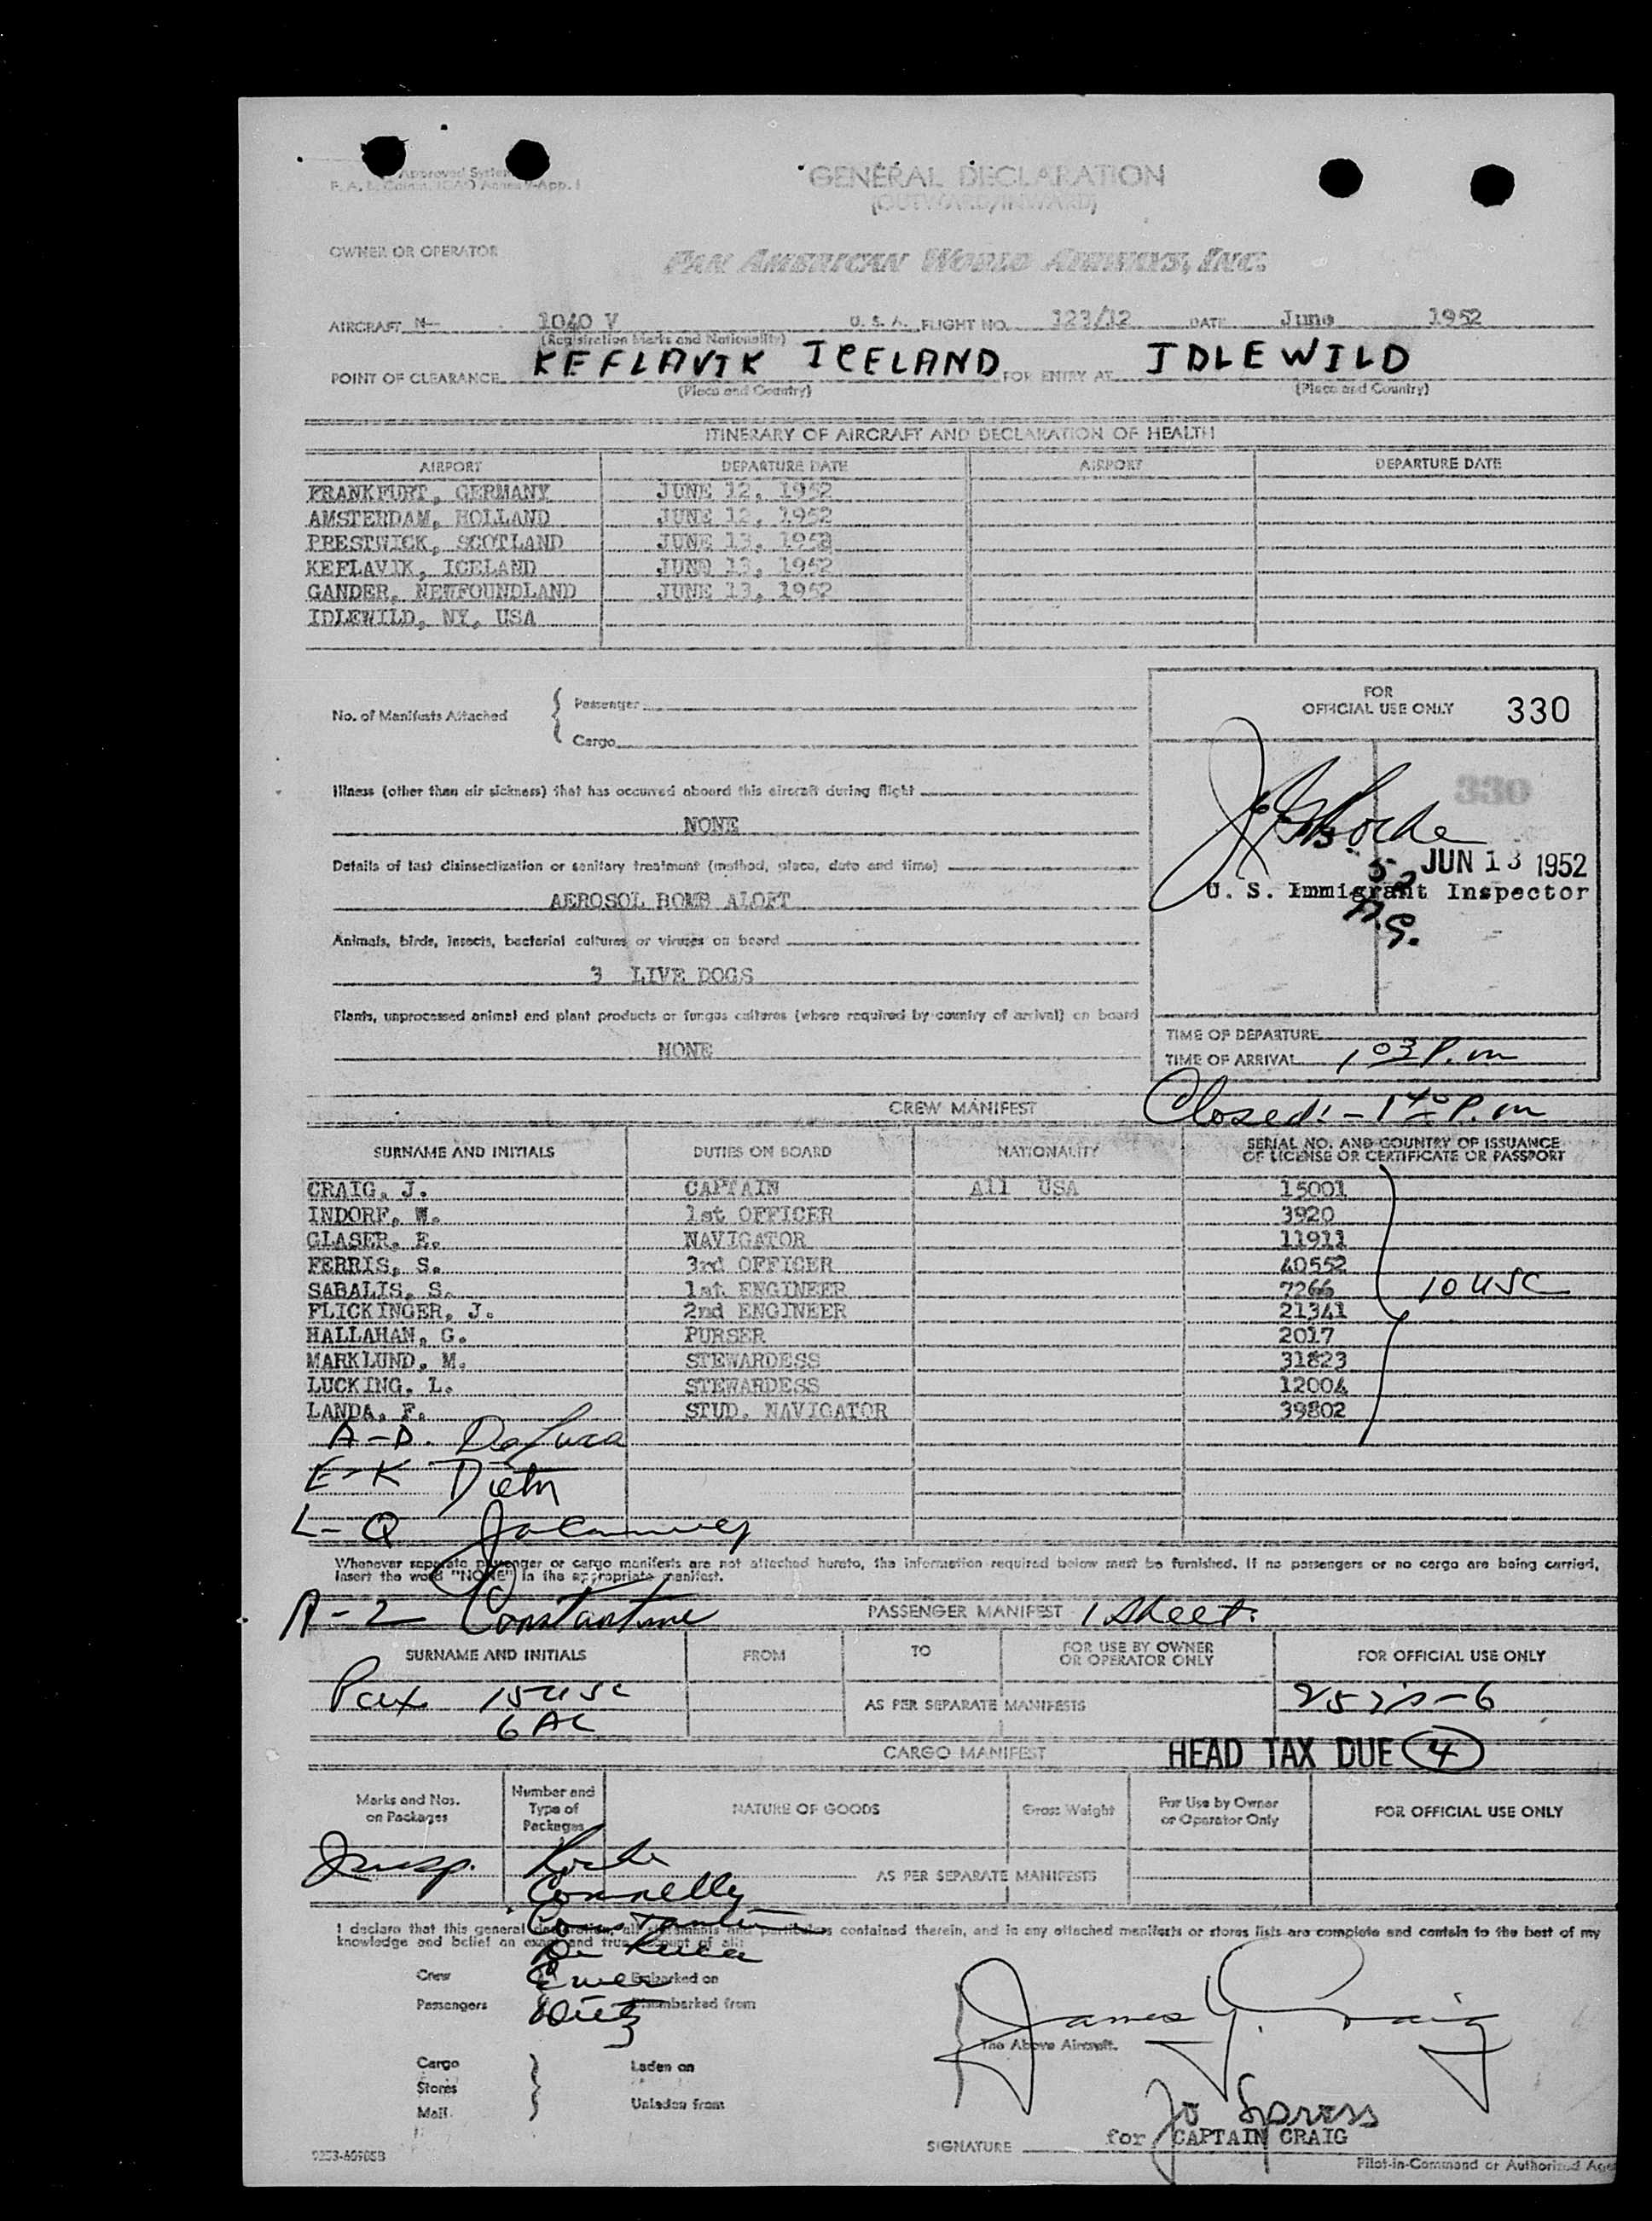 Approved System
F. A. L. Comm. ICAO Annex 9-App. 1
GENERAL DECLARATION
(OUTWARD/INWARD)
OWNER OR OPERATOR
PAN AMERICAN WORLD AIRWAYS, INC.
AIRCRAFT N- 1040 V U. S. A. FLIGHT NO. 123/12 DATE June 1952
(Registration Marks and Nationality)
POINT OF CLEARANCE KEFLAVIK ICELAND FOR ENTRY AT IDLEWILD
(Place and Country) (Place and Country)
ITINERARY OF AIRCRAFT AND DECLARATION OF HEALTH
AIRPORT DEPARTURE DATE AIRPORT DEPARTURE DATE
FRANKFURT, GERMANY JUNE 12, 1952
AMSTERDAM, HOLLAND JUNE 12, 1952
PRESTWICK, SCOTLAND JUNE 13, 1952
KEFLAVIK, ICELAND JUNE 13, 1952
GANDER, NEWFOUNDLAND JUNE 13, 1952
IDLEWILD, NY, USA
No. of Manifests Attached { Passenger
Cargo
FOR
OFFICIAL USE ONLY 330
330
Illness (other than air sickness) that has occurred aboard this aircraft during flight
NONE
Details of last disinsectization or sanitary treatment (method, place, date and time)
AEROSOL BOMB ALOFT
JUN 13 1952
U. S. Immigrant Inspector
Animals, birds, insects, bacterial cultures or viruses on board
3 LIVE DOGS
Plants, unprocessed animal and plant products or fungus cultures (where required by country of arrival) on board
NONE
TIME OF DEPARTURE
TIME OF ARRIVAL 1 03 P.m
Closed:- 1 40 P.m
CREW MANIFEST
SURNAME AND INITIALS DUTIES ON BOARD NATIONALITY SERIAL NO. AND COUNTRY OF ISSUANCE
OF LICENSE OR CERTIFICATE OR PASSPORT
CRAIG, J. CAPTAIN All USA 15001
INDORF, W. 1st OFFICER 3920
GLASER, E. NAVIGATOR 11911
FERRIS, S. 3rd OFFICER 40552
SABALIS, S. 1st ENGINEER 7266 10 USC
FLICKINGER, J. 2nd ENGINEER 21341
HALLAHAN, G. PURSER 2017
MARKLUND, M. STEWARDESS 31823
LUCKING, L. STEWARDESS 12004
LANDA, F. STUD. NAVIGATOR 39802
A-D. DeLuca
E-K Dietz
L-Q
Whenever separate passenger or cargo manifests are not attached hereto, the information required below must be furnished. If no passengers or no cargo are being carried,
insert the word "NONE" in the appropriate manifest.
R-Z Constantine PASSENGER MANIFEST 1 sheet.
SURNAME AND INITIALS FROM TO FOR USE BY OWNER
OR OPERATOR ONLY FOR OFFICIAL USE ONLY
Pax 15 USC AS PER SEPARATE MANIFESTS
6 AL
CARGO MANIFEST HEAD TAX DUE 4
Marks and Nos.
on Packages Number and
Type of
Packages NATURE OF GOODS Gross Weight For Use by Owner
or Operator Only FOR OFFICIAL USE ONLY
Insp. Roche
AS PER SEPARATE MANIFESTS
Connelly
Constantine
I declare that this general declaration, all statements and particulars contained therein, and in any attached manifests or stores lists are complete and contain to the best of my
knowledge and belief an exact and true account of all:
De Luca
Crew Embarked on
Passengers Disembarked from
Dietz
James G. Craig
The Above Aircraft.
Cargo
Stores
Mail
Laden on
Unladen from
SIGNATURE for CAPTAIN CRAIG
Pilot-in-Command or Authorized Age